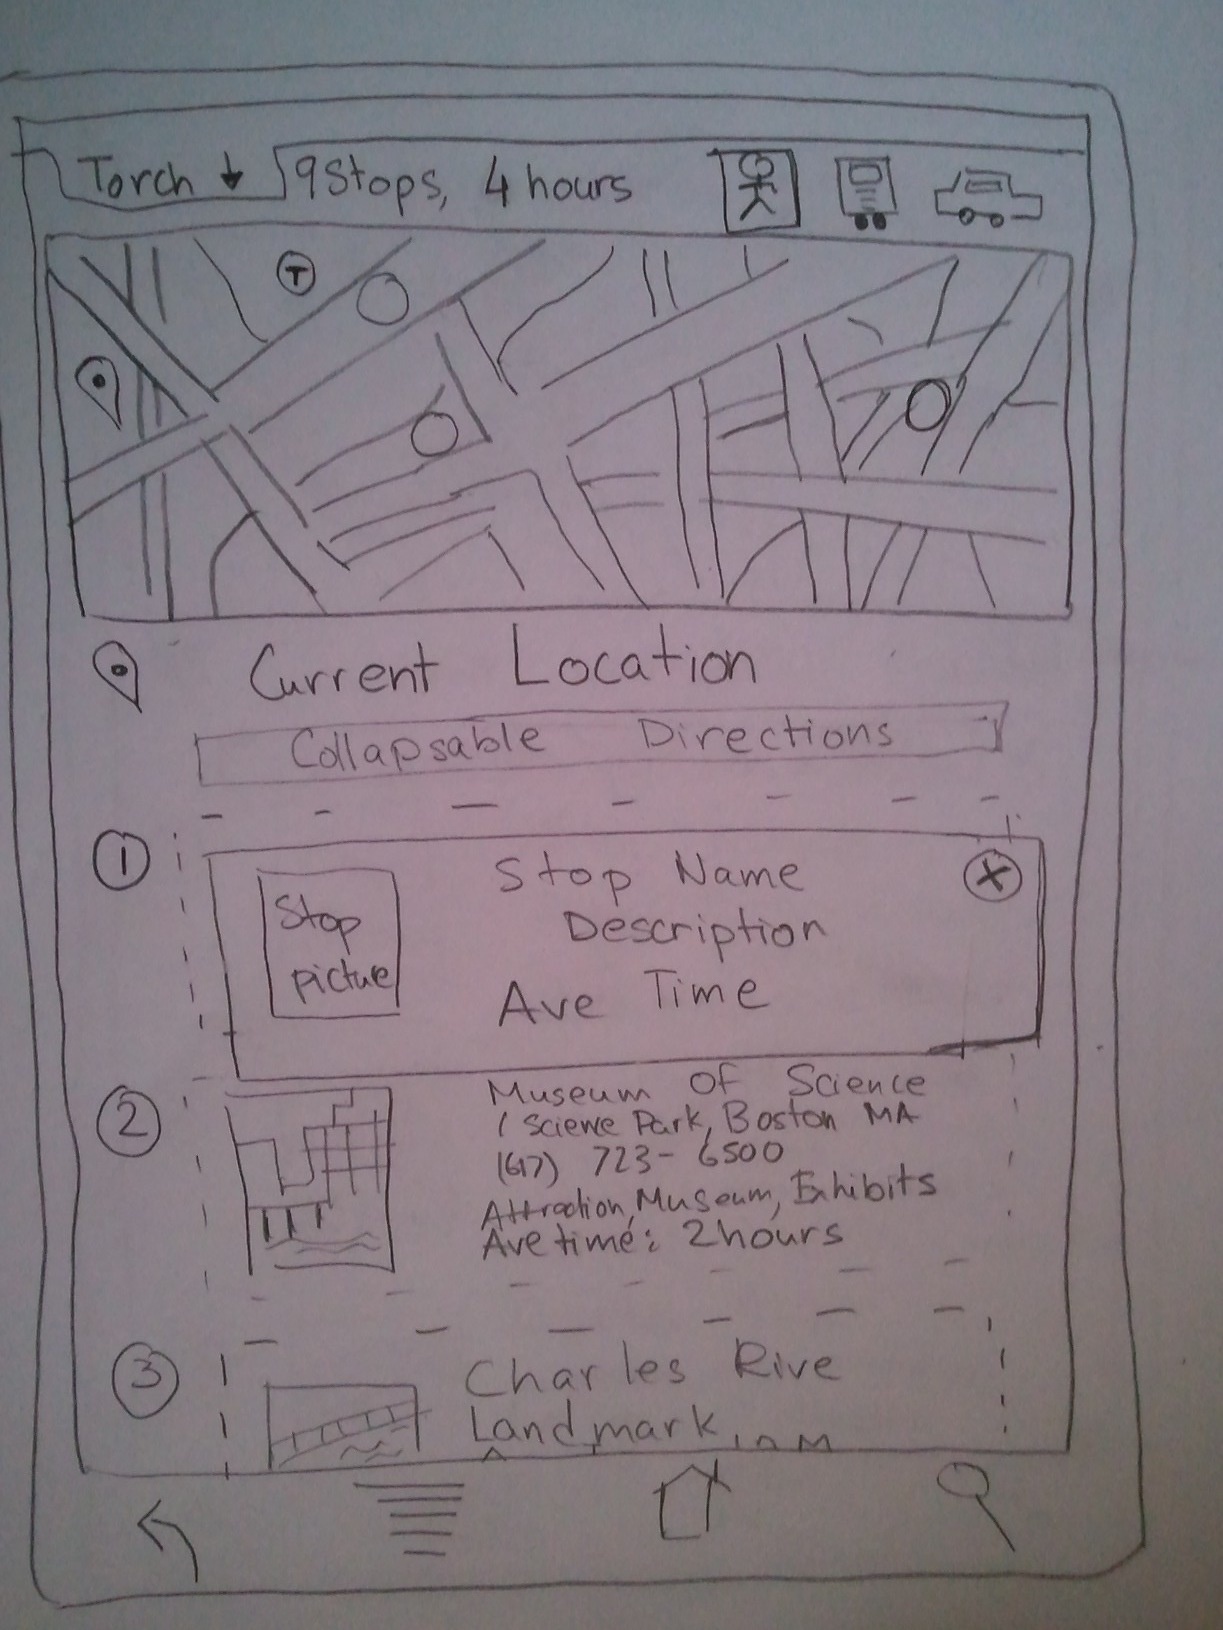 Torch ↓ 9 Stops, 4 hours
T
Current Location
Collapsable Directions
1
Stop
picture
Stop Name
Description
Ave Time
X
2
Museum Of Science
1 Science Park, Boston MA
(617) 723-6500
Attraction, Museum, Exhibits
Ave time: 2 hours
3
Charles Rive
Landmark,